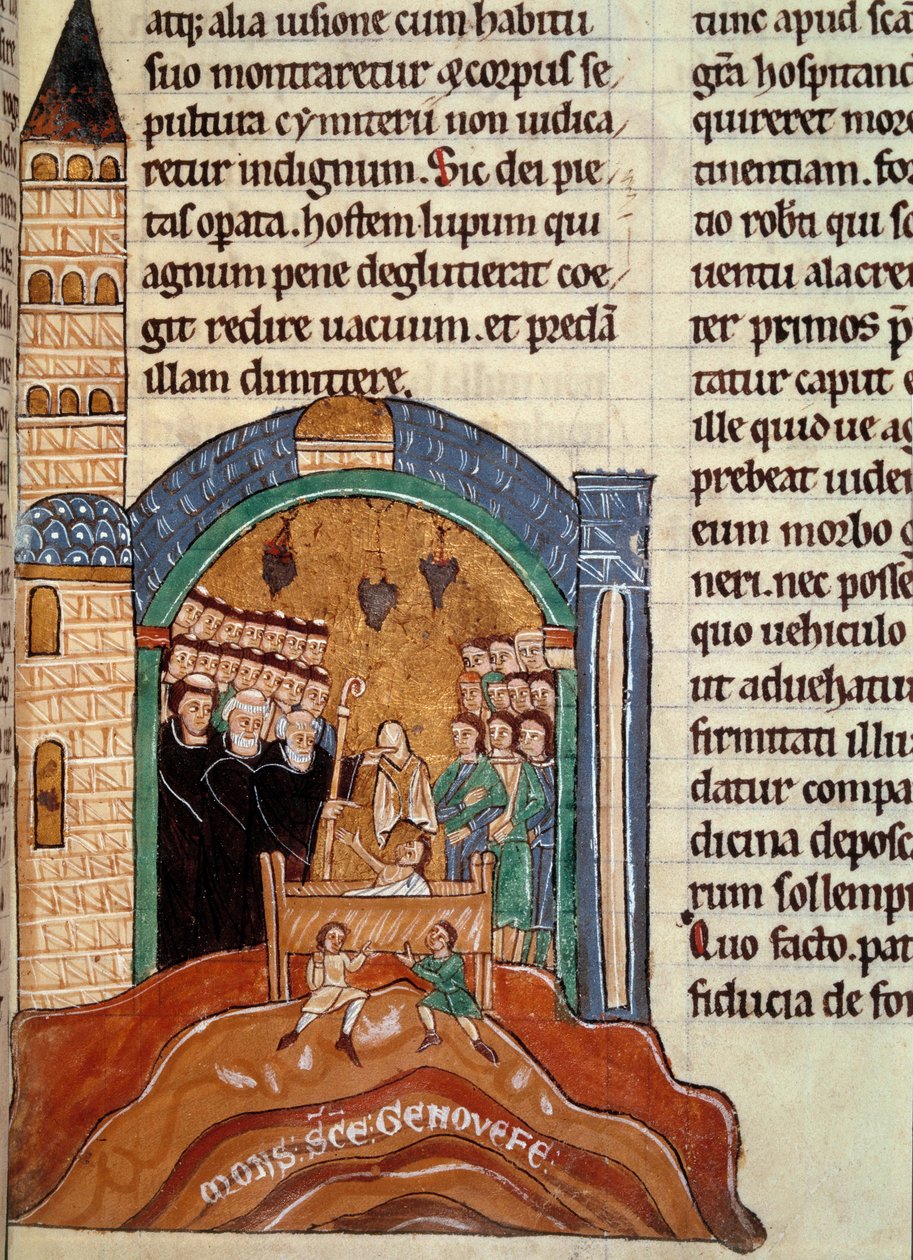 atq; alia uisione cum habitu
suo monstraretur & corpus se
pultura cymiterii non iudica
retur indignum. Sic dei pie
tas opata. hostem lupum qui
agnum pene deglutierat coe
git redire uacuum. et predā
illam dimittere.
MONS: SCE: GENOVEFE:
tunc apud
gr̄a hospitand
quireret mor
tinentiam. for
tio rob̄ti qui
uentu alacre
ter primos p̄
tatur caput
ille quid ue
prebeat uide
eum morbo
neri. nec posse
quo uehiculo
ut aduehatur
firmitati illiu
datur compa
dicina depos
rum sollemp
Quo facto. pat
fiducia de